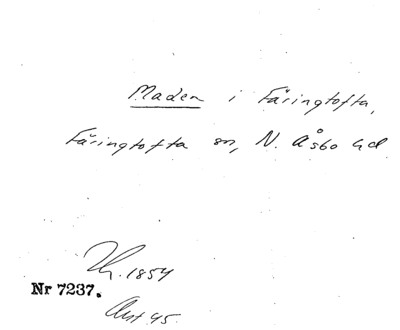 Maden i Färingtofta,
Färingtofta sn, N. Åsbo hd
Th. 1854
Nr 7237.
Ant. 45.